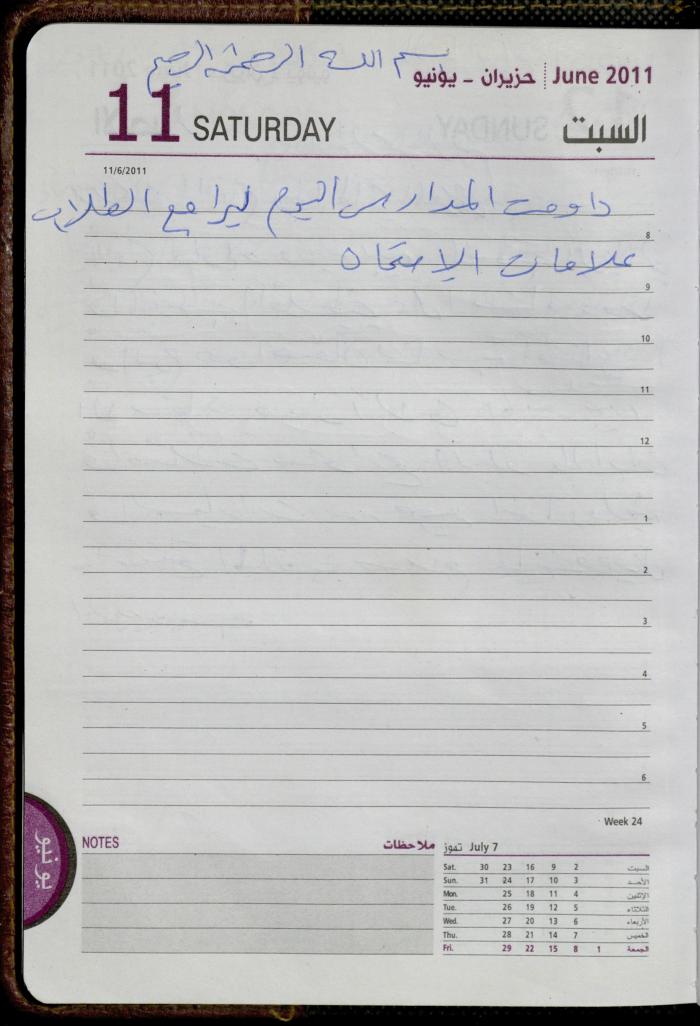 بسم الله الرحمن الرحيم
June 2011 حزيران - يونيو
11 SATURDAY السبت
11/6/2011
داومت المدارس اليوم ليراجع الطلاب
8
علامات الامتحان
9
10
11
12
1
2
3
4
5
6
Week 24
NOTES ملاحظات
July 7 تموز
Sat. 30 23 16 9 2 السبت
Sun. 31 24 17 10 3 الأحد
Mon. 25 18 11 4 الإثنين
Tue. 26 19 12 5 الثلاثاء
Wed. 27 20 13 6 الأربعاء
Thu. 28 21 14 7 الخميس
Fri. 29 22 15 8 1 الجمعة
يونيو